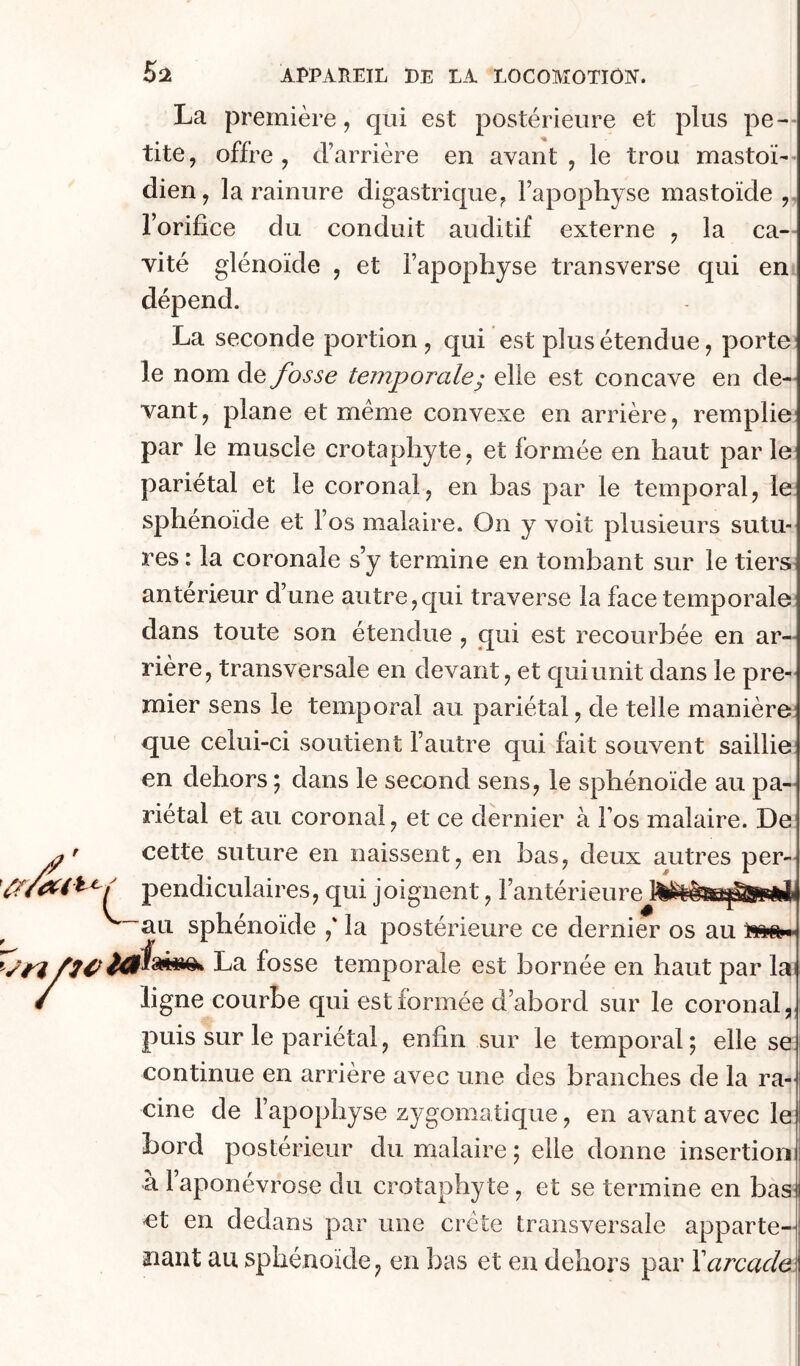 52 APPAREIL DE LA LOCOMOTION.
La première, qui est postérieure et plus pe-
tite, offre, d'arrière en avant, le trou mastoï-
dien, la rainure digastrique, l'apophyse mastoïde,
l'orifice du conduit auditif externe, la ca-
vité glénoïde, et l'apophyse transverse qui en
dépend.
La seconde portion, qui est plus étendue, porte
le nom de fosse temporale; elle est concave en de-
vant, plane et même convexe en arrière, remplie
par le muscle crotaphyte, et formée en haut par le
pariétal et le coronal, en bas par le temporal, le
sphénoïde et l'os malaire. On y voit plusieurs sutu-
res : la coronale s'y termine en tombant sur le tiers
antérieur d'une autre, qui traverse la face temporale
dans toute son étendue, qui est recourbée en ar-
rière, transversale en devant, et qui unit dans le pre-
mier sens le temporal au pariétal, de telle manière
que celui-ci soutient l'autre qui fait souvent saillie
en dehors; dans le second sens, le sphénoïde au pa-
riétal et au coronal, et ce dernier à l'os malaire. De
cette suture en naissent, en bas, deux autres per-
pendiculaires, qui joignent, l'antérieure
au sphénoïde, la postérieure ce dernier os au
La fosse temporale est bornée en haut par la
ligne courbe qui est formée d'abord sur le coronal,
puis sur le pariétal, enfin sur le temporal; elle se
continue en arrière avec une des branches de la ra-
cine de l'apophyse zygomatique, en avant avec le
bord postérieur du malaire; elle donne insertion
à l'aponévrose du crotaphyte, et se termine en bas
et en dedans par une crête transversale apparte-
nant au sphénoïde, en bas et en dehors par l'arcade